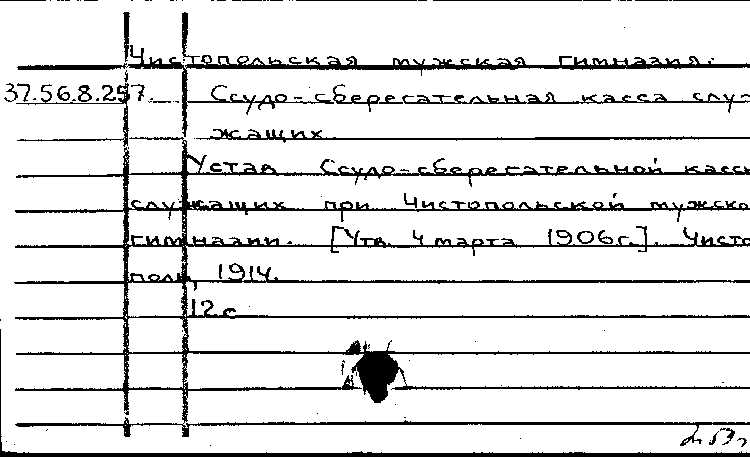 Чистопольская мужская гимназия.
37.56.8.257. Ссудо-сберегательная касса слу-
жащих.
Устав Ссудо-сберегательной кассы
служащих при Чистопольской мужско
гимназии. [Утв. 4 марта 1906г.]. Чисто
поль, 1914.
12 с